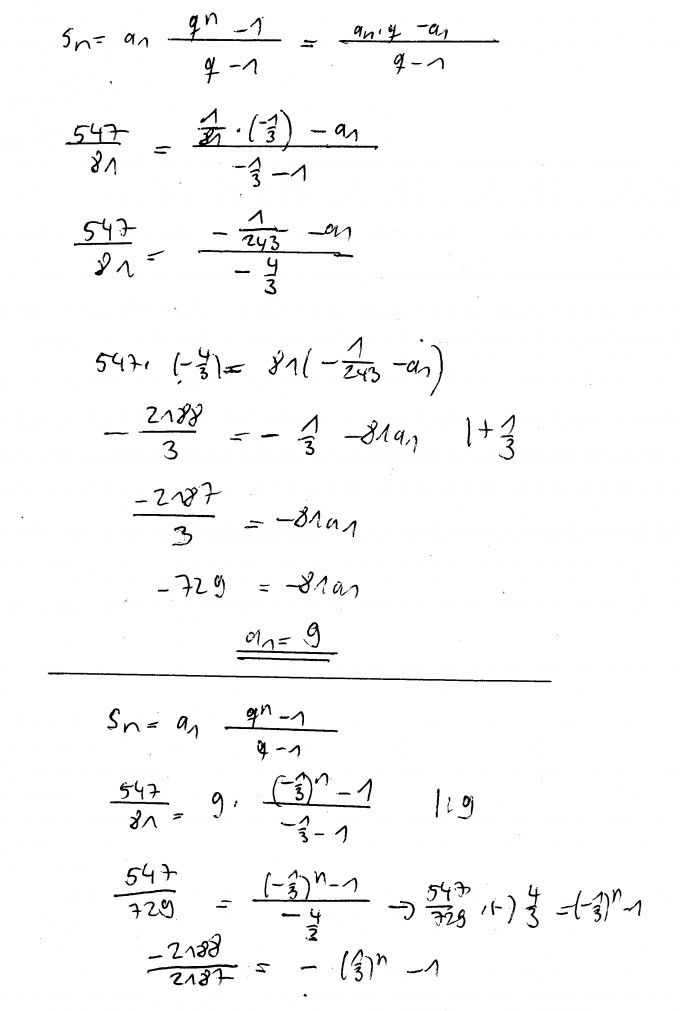 Sn = a1 (q^n - 1)/(q - 1) = (an·q - a1)/(q - 1)
547/81 = (1/81 · (-1/3) - a1)/(-1/3 - 1)
547/81 = (-1/243 - a1)/(-4/3)
547 · (-4/3) = 81(-1/243 - a1)
-2188/3 = -1/3 - 81a1 |+1/3
-2187/3 = -81a1
-729 = -81a1
a1 = 9
Sn = a1 (q^n - 1)/(q - 1)
547/81 = 9 · ((-1/3)^n - 1)/(-1/3 - 1) |:9
547/729 = ((-1/3)^n - 1)/(-4/3) → 547/729 · (-) 4/3 = (-1/3)^n - 1
-2188/2187 = - (1/3)^n - 1